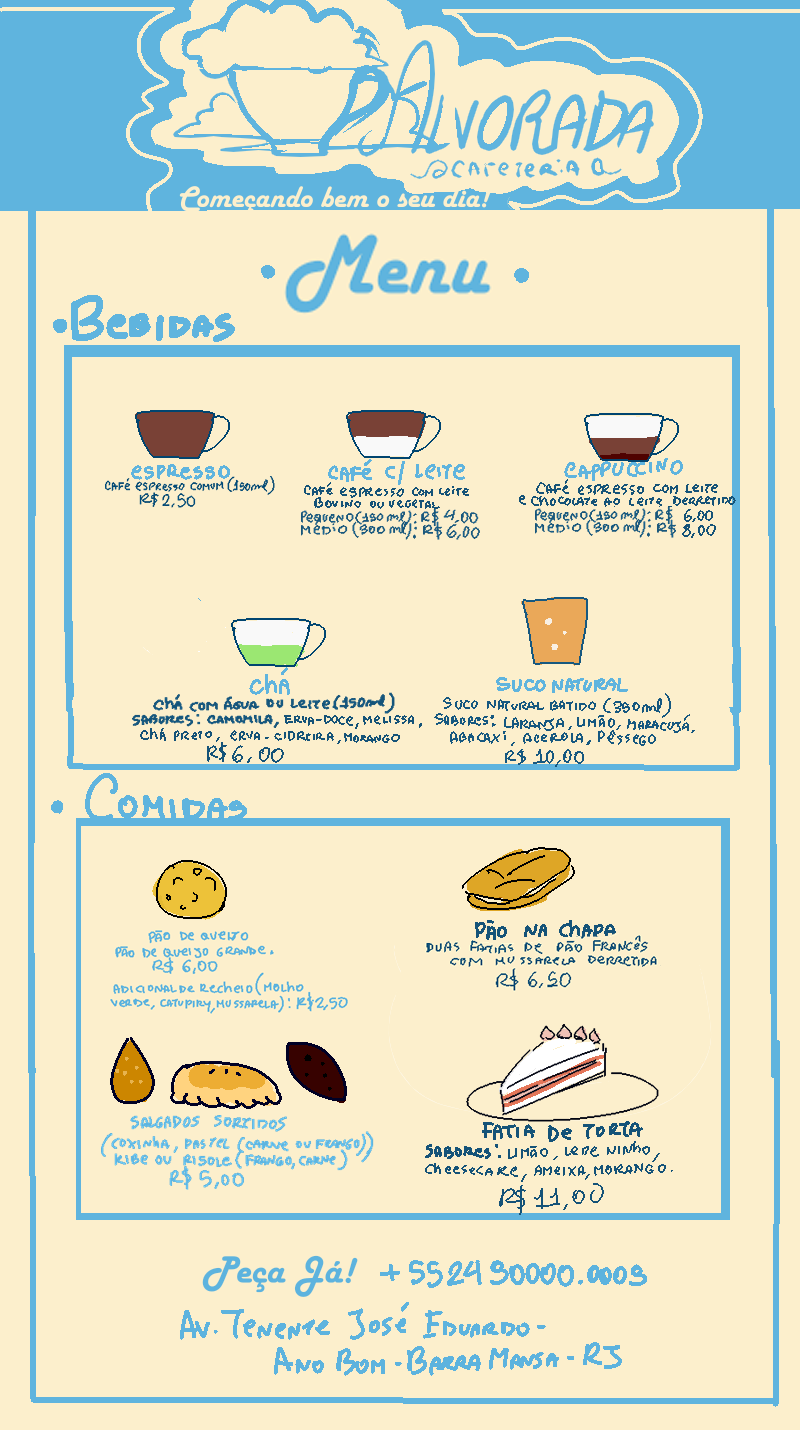 ALVORADA
CAFETERIA
Começando bem o seu dia!
• Menu •
• BEBIDAS
ESPRESSO
CAFÉ ESPRESSO COMUM (150ml)
R$ 2,50
CAFÉ C/ LEITE
CAFÉ ESPRESSO COM LEITE
BOVINO OU VEGETAL
PEQUENO (150 ml): R$ 4,00
MÉDIO (300 ml): R$ 6,00
CAPPUCCINO
CAFÉ ESPRESSO COM LEITE
E CHOCOLATE AO LEITE DERRETIDO
PEQUENO (150 ml): R$ 6,00
MÉDIO (300 ml): R$ 8,00
CHÁ
CHÁ COM ÁGUA OU LEITE (150ml)
SABORES: CAMOMILA, ERVA-DOCE, MELISSA,
CHÁ PRETO, ERVA-CIDREIRA, MORANGO
R$ 6,00
SUCO NATURAL
SUCO NATURAL BATIDO (350ml)
SABORES: LARANJA, LIMÃO, MARACUJÁ,
ABACAXI, ACEROLA, PÊSSEGO
R$ 10,00
• COMIDAS
PÃO DE QUEIJO
PÃO DE QUEIJO GRANDE.
R$ 6,00
ADICIONAL DE RECHEIO (MOLHO
VERDE, CATUPIRY, MUSSARELA): R$2,50
PÃO NA CHAPA
DUAS FATIAS DE PÃO FRANCÊS
COM MUSSARELA DERRETIDA
R$ 6,50
SALGADOS SORTIDOS
(COXINHA, PASTEL (CARNE OU FRANGO))
KIBE OU RISOLE (FRANGO, CARNE)
R$ 5,00
FATIA DE TORTA
SABORES: LIMÃO, LEITE NINHO,
CHEESECAKE, AMEIXA, MORANGO.
R$ 11,00
Peça Já! +552490000.0009
AV. TENENTE JOSÉ EDUARDO -
ANO BOM - BARRA MANSA - RJ